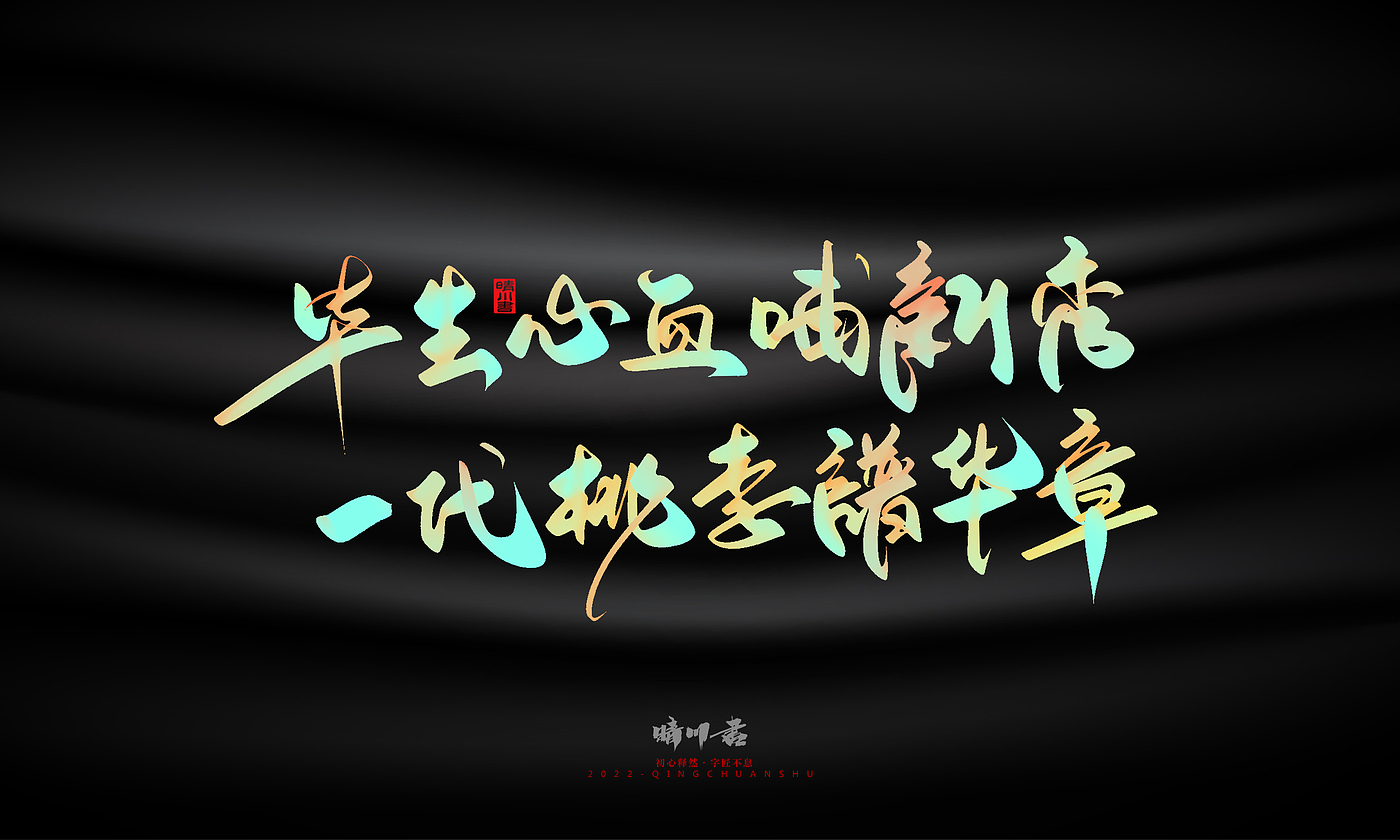 毕生心血哺新秀
晴川書
一代桃李譜华章
晴川书
初心师然·字匠不息
2022-QINGCHUANSHU